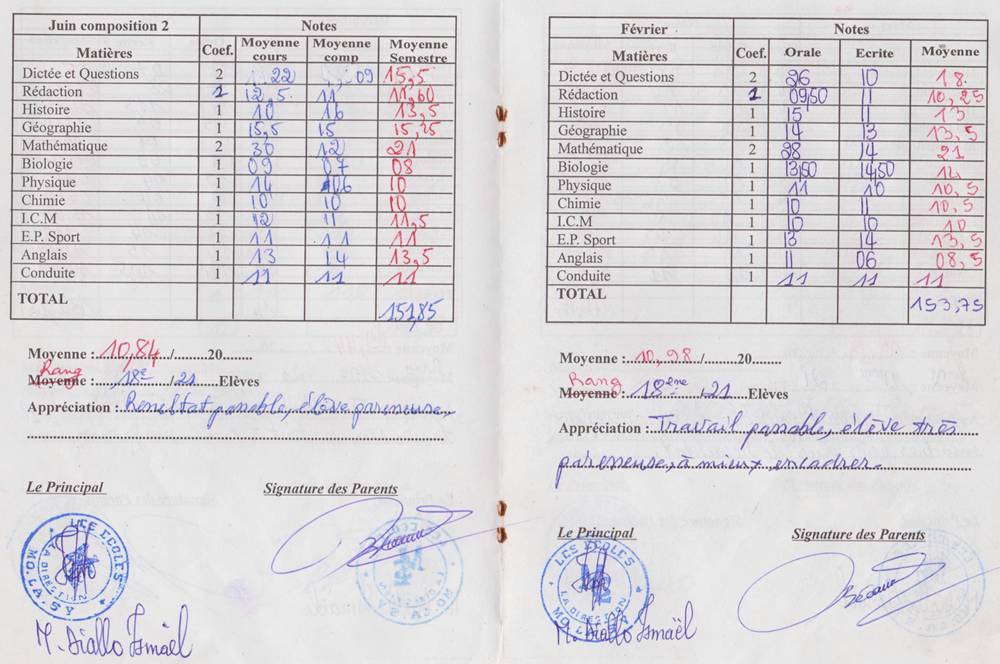 Juin composition 2 Notes
Matières Coef. Moyenne cours Moyenne comp Moyenne Semestre
Dictée et Questions 2 22 09 15,5
Rédaction 1 12,5 11 11,60
Histoire 1 10 16 13,5
Géographie 1 15,5 15 15,25
Mathématique 2 30 12 21
Biologie 1 09 07 08
Physique 1 14 06 10
Chimie 1 10 10 10
I.C.M 1 12 11 11,5
E.P. Sport 1 11 11 11
Anglais 1 13 14 13,5
Conduite 1 11 11 11
TOTAL 151,85
Moyenne : 10,84 /.........20.......
Rang
Moyenne : 18e /21 Elèves
Appréciation : Resultat passable, élève paresseuse.
Le Principal Signature des Parents
LES ECOLES
LA DIRECTION
MO.LA.SY
M. Diallo Ismaël
Février Notes
Matières Coef. Orale Ecrite Moyenne
Dictée et Questions 2 26 10 18
Rédaction 1 09,50 11 10,25
Histoire 1 15 11 13
Géographie 1 14 13 13,5
Mathématique 2 28 14 21
Biologie 1 13,50 14,50 14
Physique 1 11 10 10,5
Chimie 1 10 11 10,5
I.C.M 1 10 10 10
E.P. Sport 1 13 14 13,5
Anglais 1 11 06 08,5
Conduite 1 11 11 11
TOTAL 153,75
Moyenne : 10,98 /.........20.....
Rang
Moyenne : 18ème /21 Elèves
Appréciation : Travail passable, élève très
paresseuse, à mieux encadrer.
Le Principal Signature des Parents
LES ECOLES
LA DIRECTION
M. Diallo Ismaël